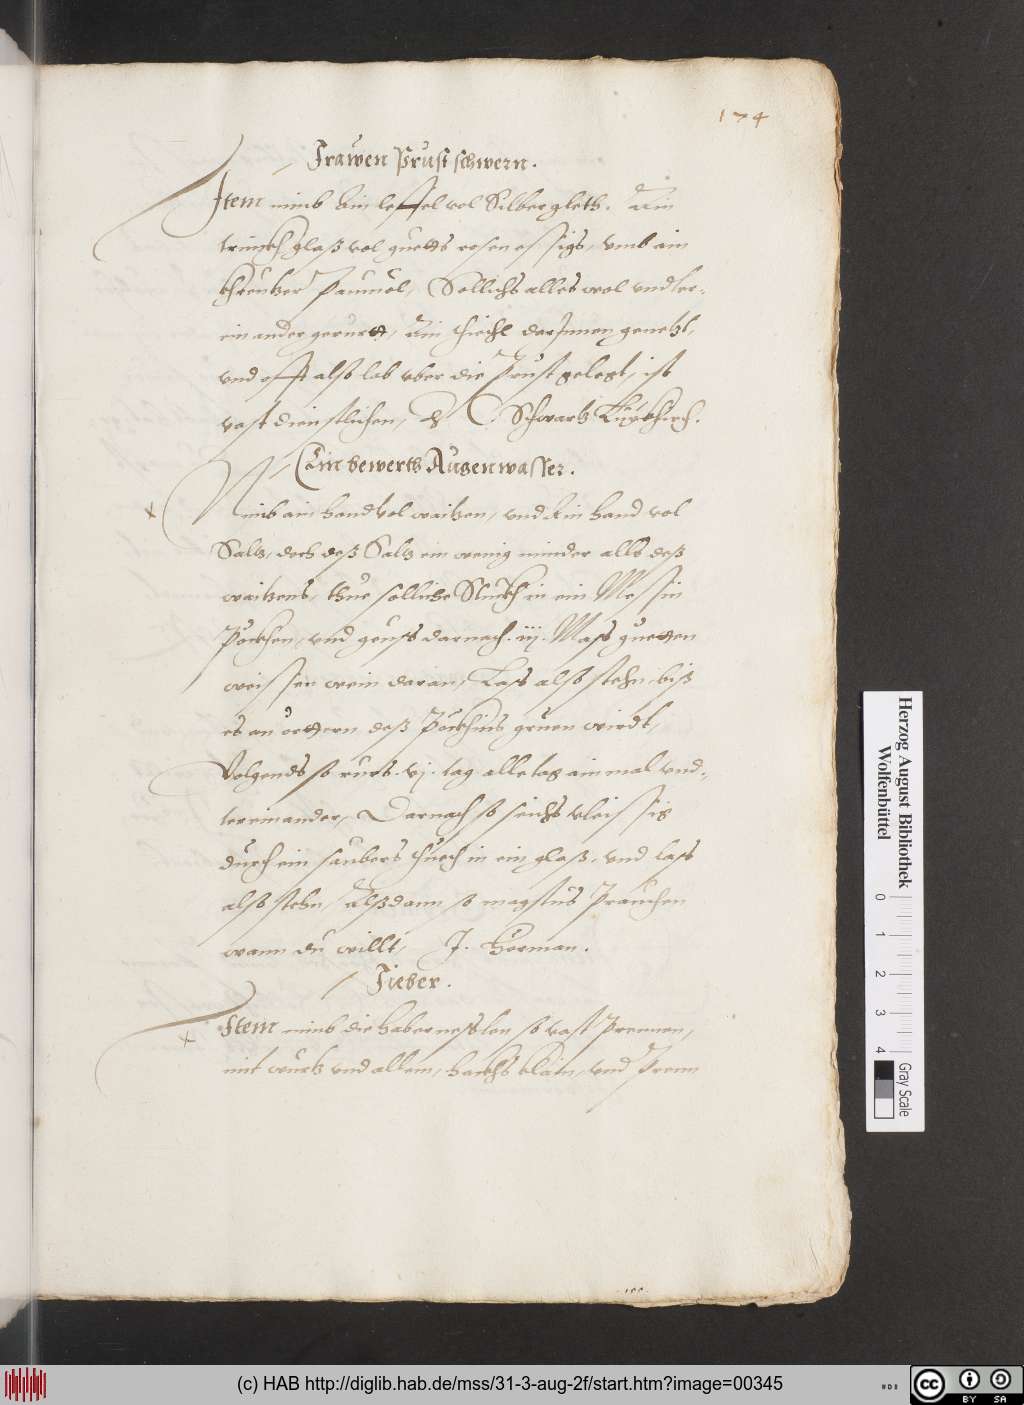 174
Frawen Prust schwern.
Item nimb Ain leffel vol Silbergleth. Ain
trinckh glaß vol guetts rosen essigs, vmb ain
khreutzer Paumöl, Sollichs alles wol vndter-
ein ander gerurtt, Ain thiechl darJnnen genetzt,
vnd offt also lab vber die Prust gelegt, ist
vast dienstlichen, Schwartz
Ain bewerth Augen wasser.
Nimb ain handt vol waitzen, vnd Ain hand vol
Saltz, doch deß Saltz ein wenig minder alls deß
waitzens, thue solliche Stuckh in ein Messin
Peckhen, vnd geuss darnach .iij. Mass guetten
weissen wein daran, Lass also stehn biß
es an ortten deß Peckhins gruen wirdt,
Volgends so ruers .vj. tag alle tag ain mal vnd-
tereinander, Darnach so seichs vleissig
durch ein saubers thuech in ein glaß, vnd lass
also stehn, Alßdann so magstus Prauchen
wann du willt, J. Herman.
Fieber.
Item nimb die habernesslen so vast Prennen,
mit wurtz vnd allem, hackhs klain, vnd Prenn
Herzog August Bibliothek
Wolfenbüttel
0 1 2 3 4
Gray Scale
(c) HAB http://diglib.hab.de/mss/31-3-aug-2f/start.htm?image=00345
cc BY SA